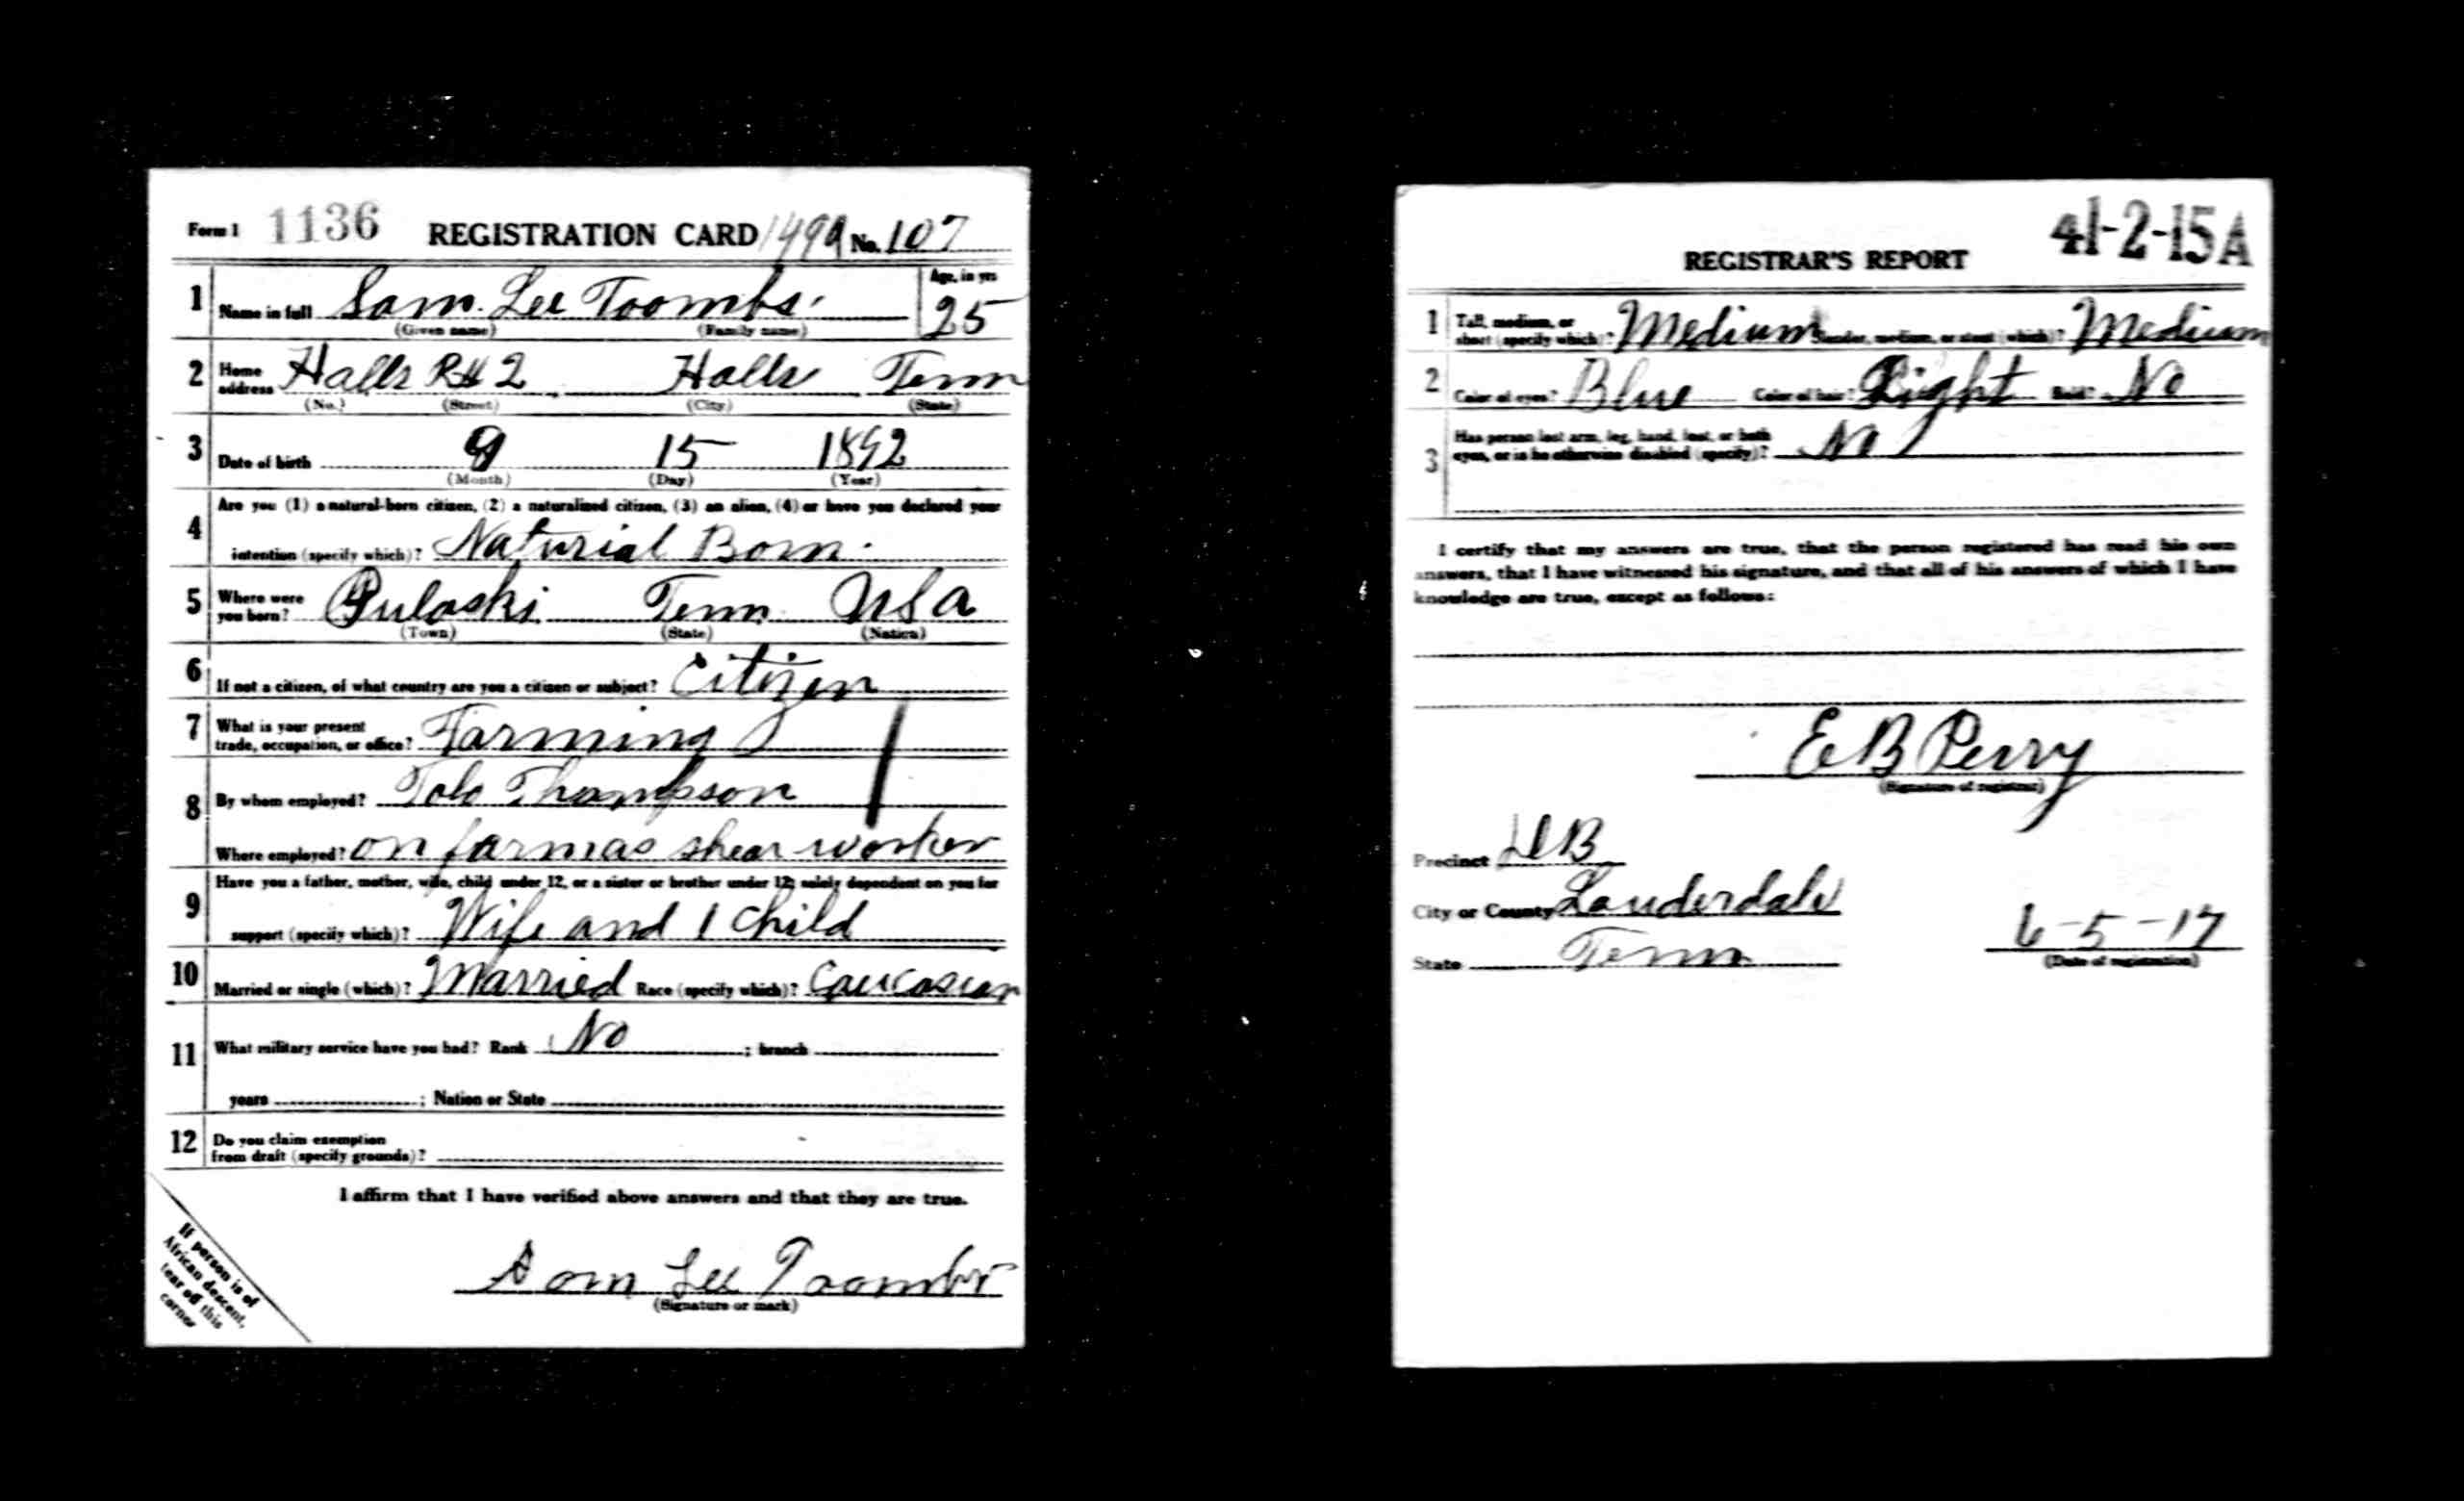 Form 1 1136 REGISTRATION CARD 1499 No. 107
1 Name in full Sam Lee Toombs. Age, in yrs 25
(Given name) (Family name)
2 Home address Halls R#2 Halls Tenn
(No.) (Street) (City) (State)
3 Date of birth 9 15 1892
(Month) (Day) (Year)
4 Are you (1) a natural-born citizen, (2) a naturalized citizen, (3) an alien, (4) or have you declared your
intention (specify which)? Naturial Born.
5 Where were you born? Pulaski Tenn. USA
(Town) (State) (Nation)
6 If not a citizen, of what country are you a citizen or subject? Citizen
7 What is your present
trade, occupation, or office? Farming
8 By whom employed? Thompson
Where employed? on farm as shear worker
9 Have you a father, mother, wife, child under 12, or a sister or brother under 12, solely dependent on you for
support (specify which)? Wife and 1 child
10 Married or single (which)? Married Race (specify which)? Caucasian
11 What military service have you had? Rank No ; branch
years ; Nation or State
12 Do you claim exemption
from draft (specify grounds)?
I affirm that I have verified above answers and that they are true.
Sam Lee Toombs
(Signature or mark)
If person is of
African descent,
tear off this
corner
41-2-15A
REGISTRAR'S REPORT
1 Tall, medium, or
short (specify which)? Medium Slender, medium, or stout (which)? Medium
2 Color of eyes? Blue Color of hair? Light Bald? No
3 Has person lost arm, leg, hand, foot, or both
eyes, or is he otherwise disabled (specify)? No
I certify that my answers are true, that the person registered has read his own
answers, that I have witnessed his signature, and that all of his answers of which I have
knowledge are true, except as follows:
E B Perry
(Signature of registrar)
Precinct
City or County Lauderdale
State Tenn
6-5-17
(Date of registration)